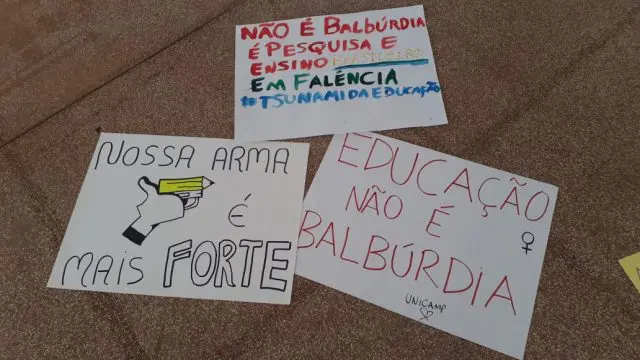 NÃO É BALBÚRDIA
É PESQUISA E
ENSINO BRASILEIRO
EM FALÊNCIA
#TSUNAMIDAEDUCAÇÃO
NOSSA ARMA
É
MAIS FORTE
EDUCAÇÃO
NÃO É
BALBÚRDIA
UNICAMP